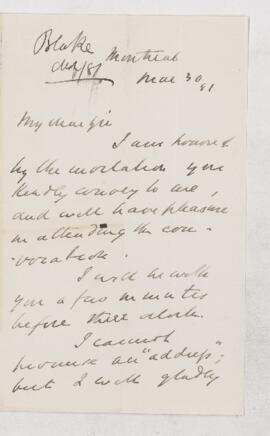 Blake
Montreal
Mar 30 81
My dear Sir
I am honored
by the invitation you
kindly convey to me,
and will have pleasure
in attending the con-
-vocation.
I will be with
you a few minutes
before three o'clock.
I cannot
promise an "address";
but I will gladly